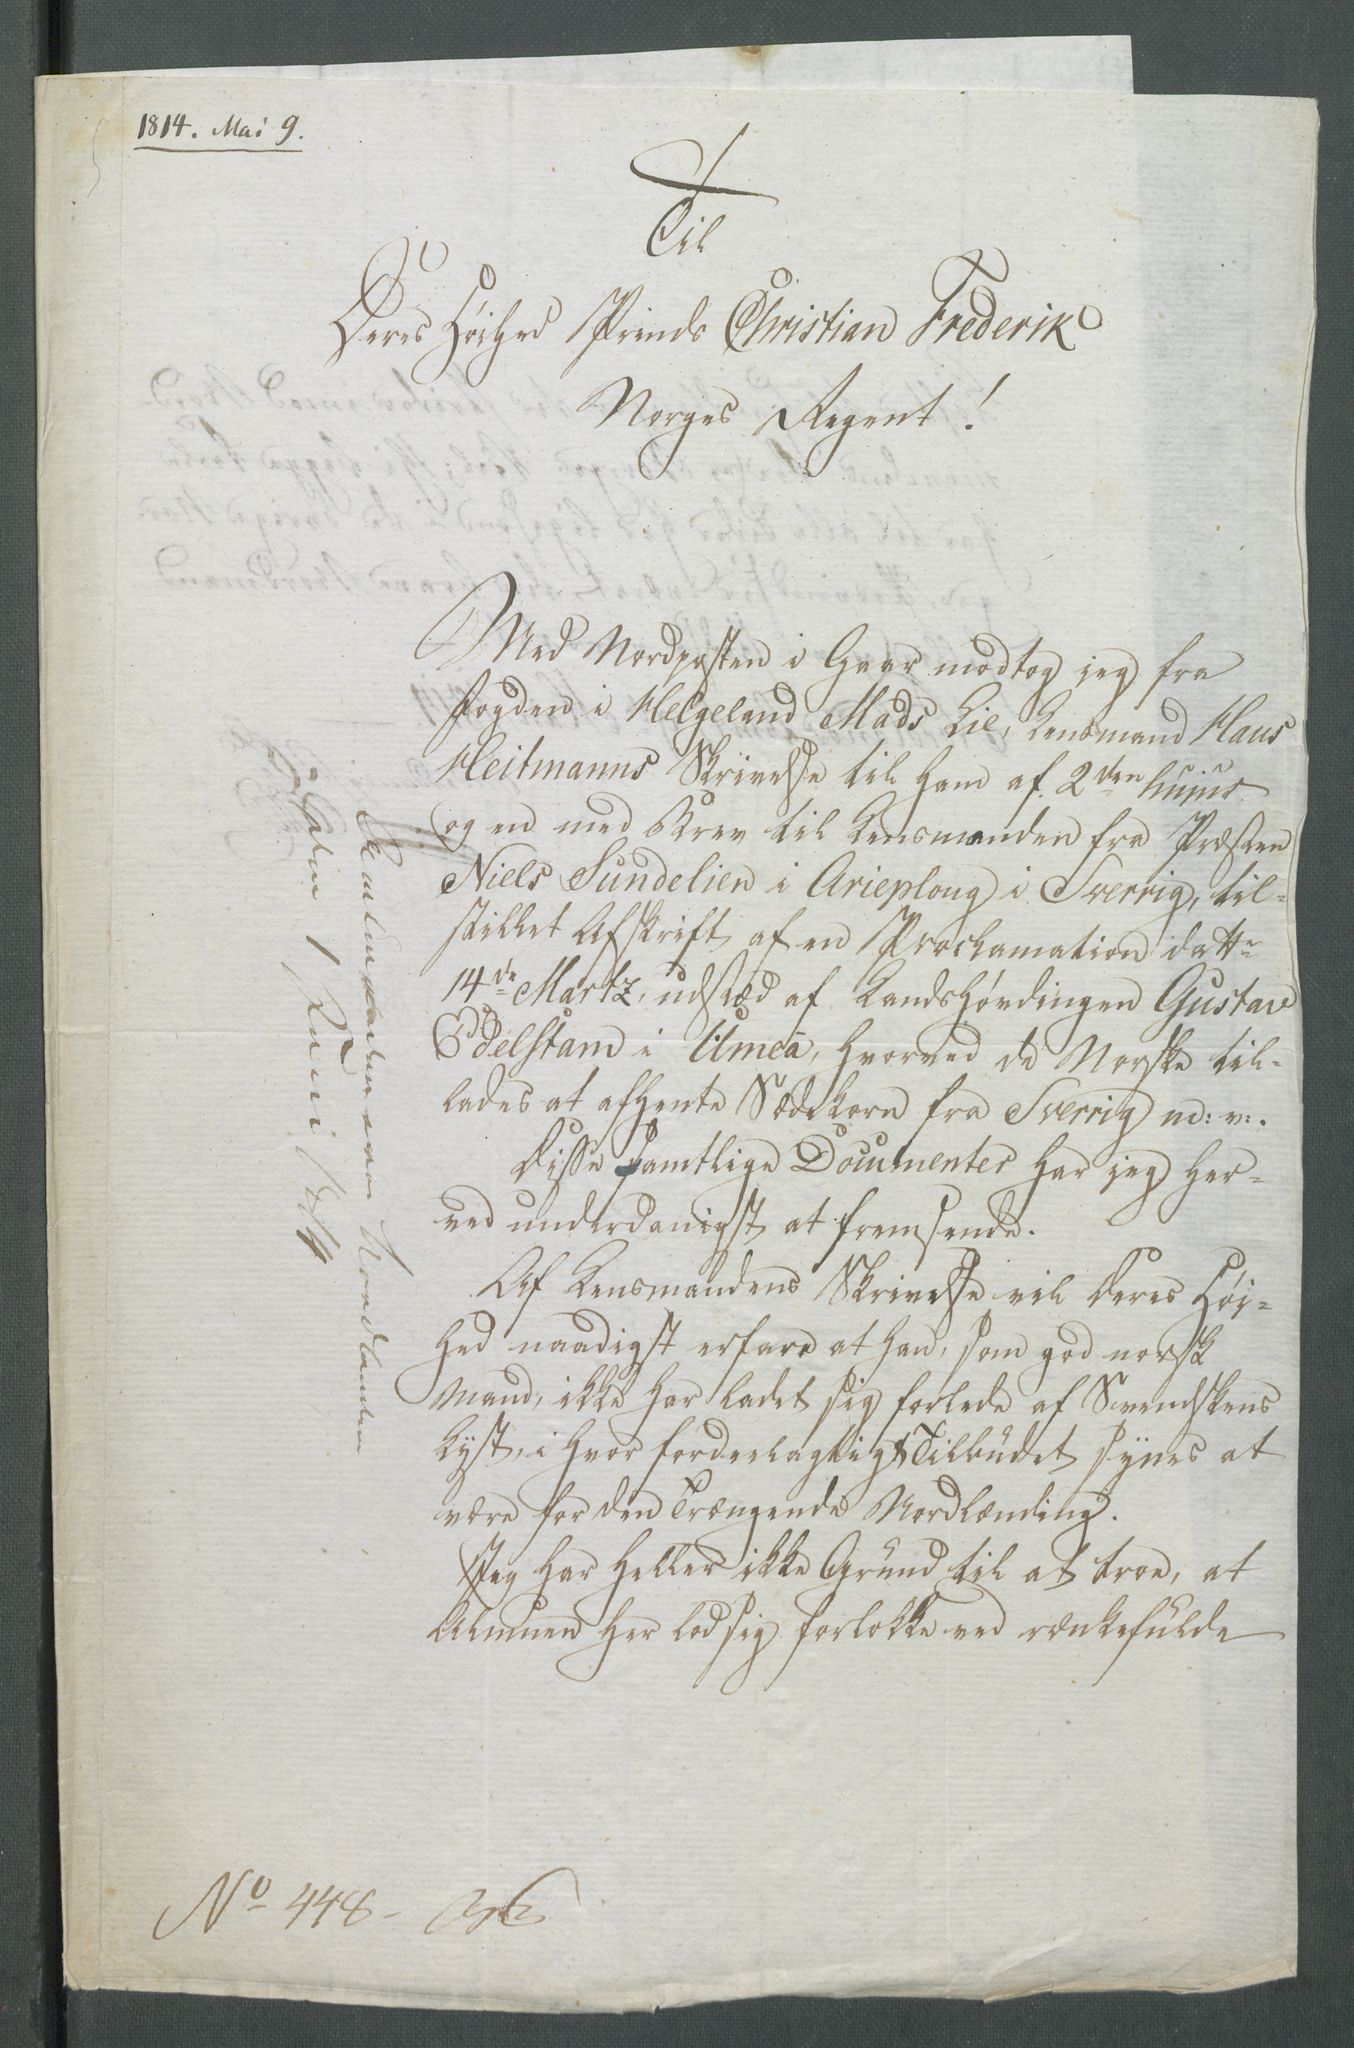 1814. Mai 9.
Til
Deres Höihed Prinds Christian Frederik
Norges Regent!
Med Nordposten i Gaar modtog jeg fra
Fogden i Helgeland Mads Lie, Lensmand Hans
Heitmanns Skrivelse til ham af 2den hujus
og en med Brev til Lensmanden fra Præsten
Niels Sundelien i Arieploug i Sverrig, til-
stillet Afskrift af en Proclamation datr
14de Martz, udstæd af Landshövdingen Gustav
Edelstam i Umeå, hvorved de Norske til-
lades at afhente Sædekorn fra Sverrig m: v:.
Disse samtlige Documenter har jeg her-
ved underdanigst at fremsende.
Af Lensmandens Skrivelse vil Deres Höi-
hed naadigst erfare at han, som god norsk
Mand, ikke har ladet sig forlede af Svenskens
Lyst, i hvor fordeelagtigt Tilbudet synes at
være for den Trængende Nordlænding.
Jeg har heller ikke Grund til at troe, at
Almuen her lod sig forlokke ved rænkefulde
Nordlanden
Juni
No 448-